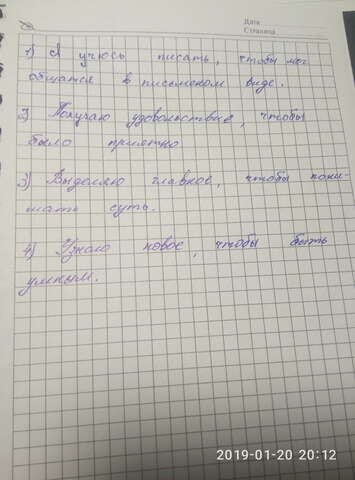 Дата
Страница
1) Я учюсь писать, чтобы мог
общатся в письменом виде.
2) Получаю удовольствие, чтобы
было приятно
3) Выделяю главное, чтобы пони-
мать суть.
4) Узнаю новое, чтобы быть
умным.
2019-01-20 20:12